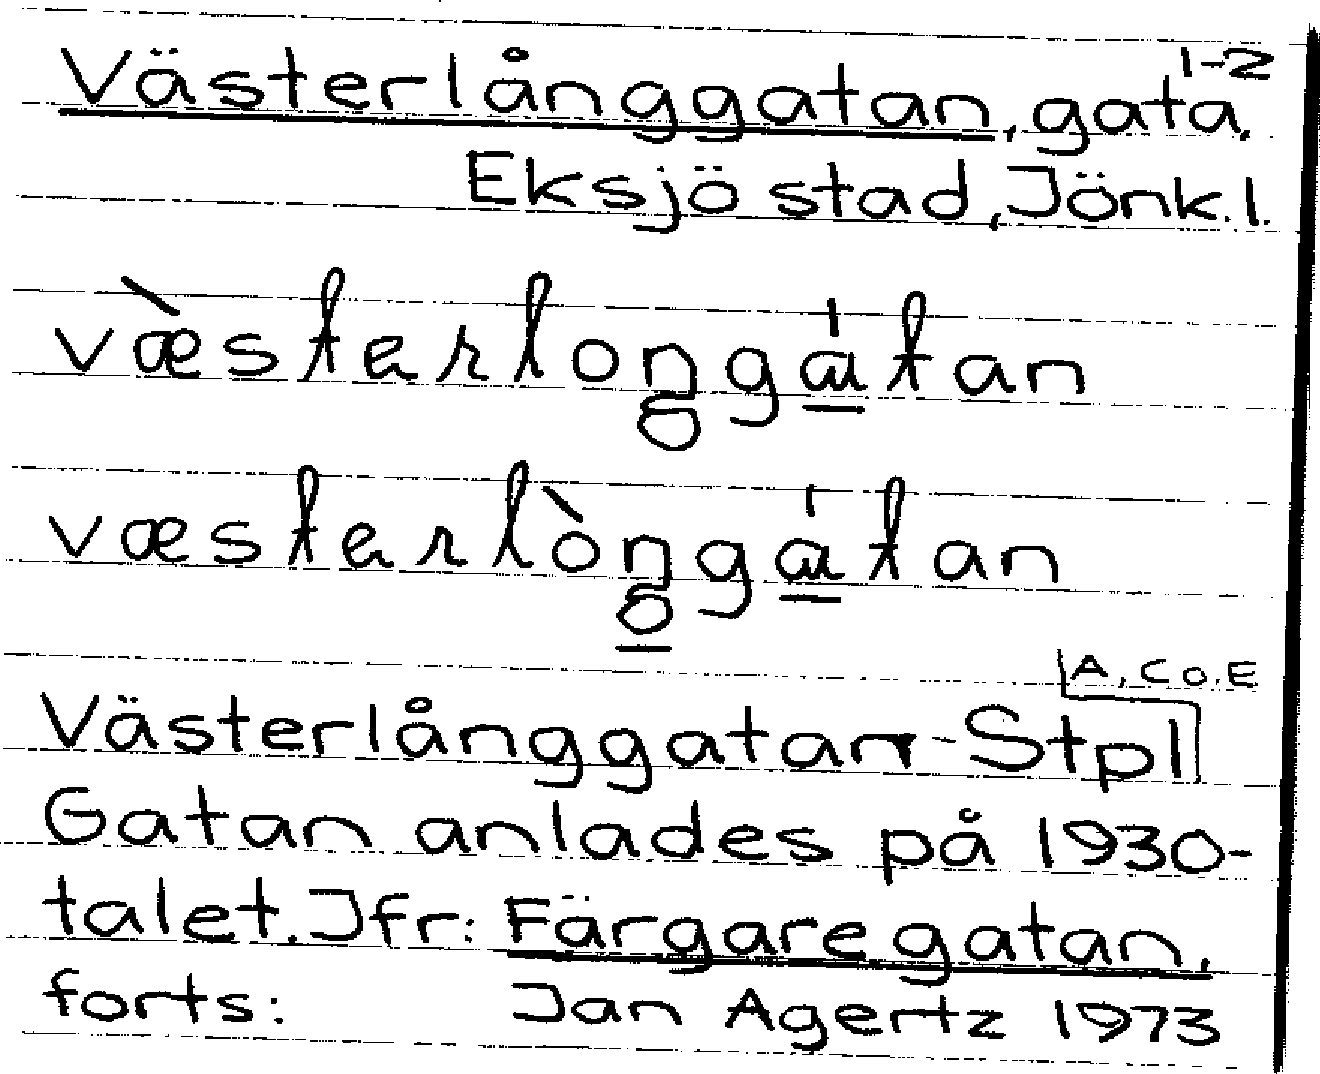 Västerlånggatan, gata, 1-2
Eksjö stad, Jönk. l.
væ̀sterloŋgátan
væsterlòŋgátan
A, Co. E
Västerlånggatan - Stpl
Gatan anlades på 1930-
talet. Jfr: Färgaregatan,
forts: Jan Agertz 1973